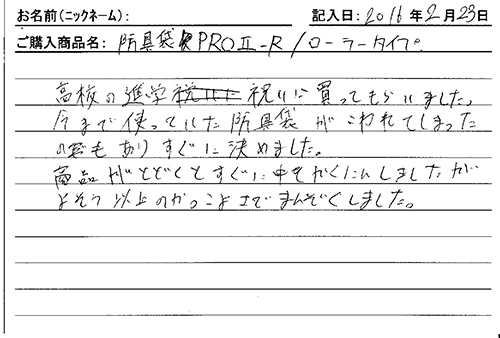 お名前(ニックネーム): 記入日: 2016年2月23日
ご購入商品名: 防具袋 PROⅡ-R/ローラータイプ
高校の進学祝いに買ってもらいました。
今まで使っていた防具袋がこわれてしまった
のもありすぐに決めました。
商品がとどくとすぐに中をかくにんしましたが
よそう以上のかっこよさでまんぞくしました。